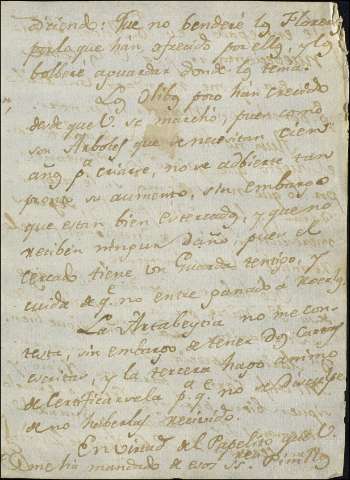 diciend: Que no benderé los Flores
por lo que hán ofrecido por ellos, y los
bolbere aguardar donde los tenia.
Los Olibos poco han crecido
desde que V. se marcho, pues como
son Arboles que se necesitan cien
años p.a criarse, no se adbierte tan
presto su aumento, sin embargo
que estan bien estercados, y que no
reciben ningun daño, pues el
cercado tiene un Guarda rentijo, y
cuida de q.e no entre ganado a roerlos.
La Artabeytia no me con-
testa, sin embargo de tener dos Cartas
escritas, y la tercera hago animo
de Certificarsela p.a q.e no se disculpe
de no haberlas recivido.
En virtud del Papelito que V.
me ha mandado de esos SS.res